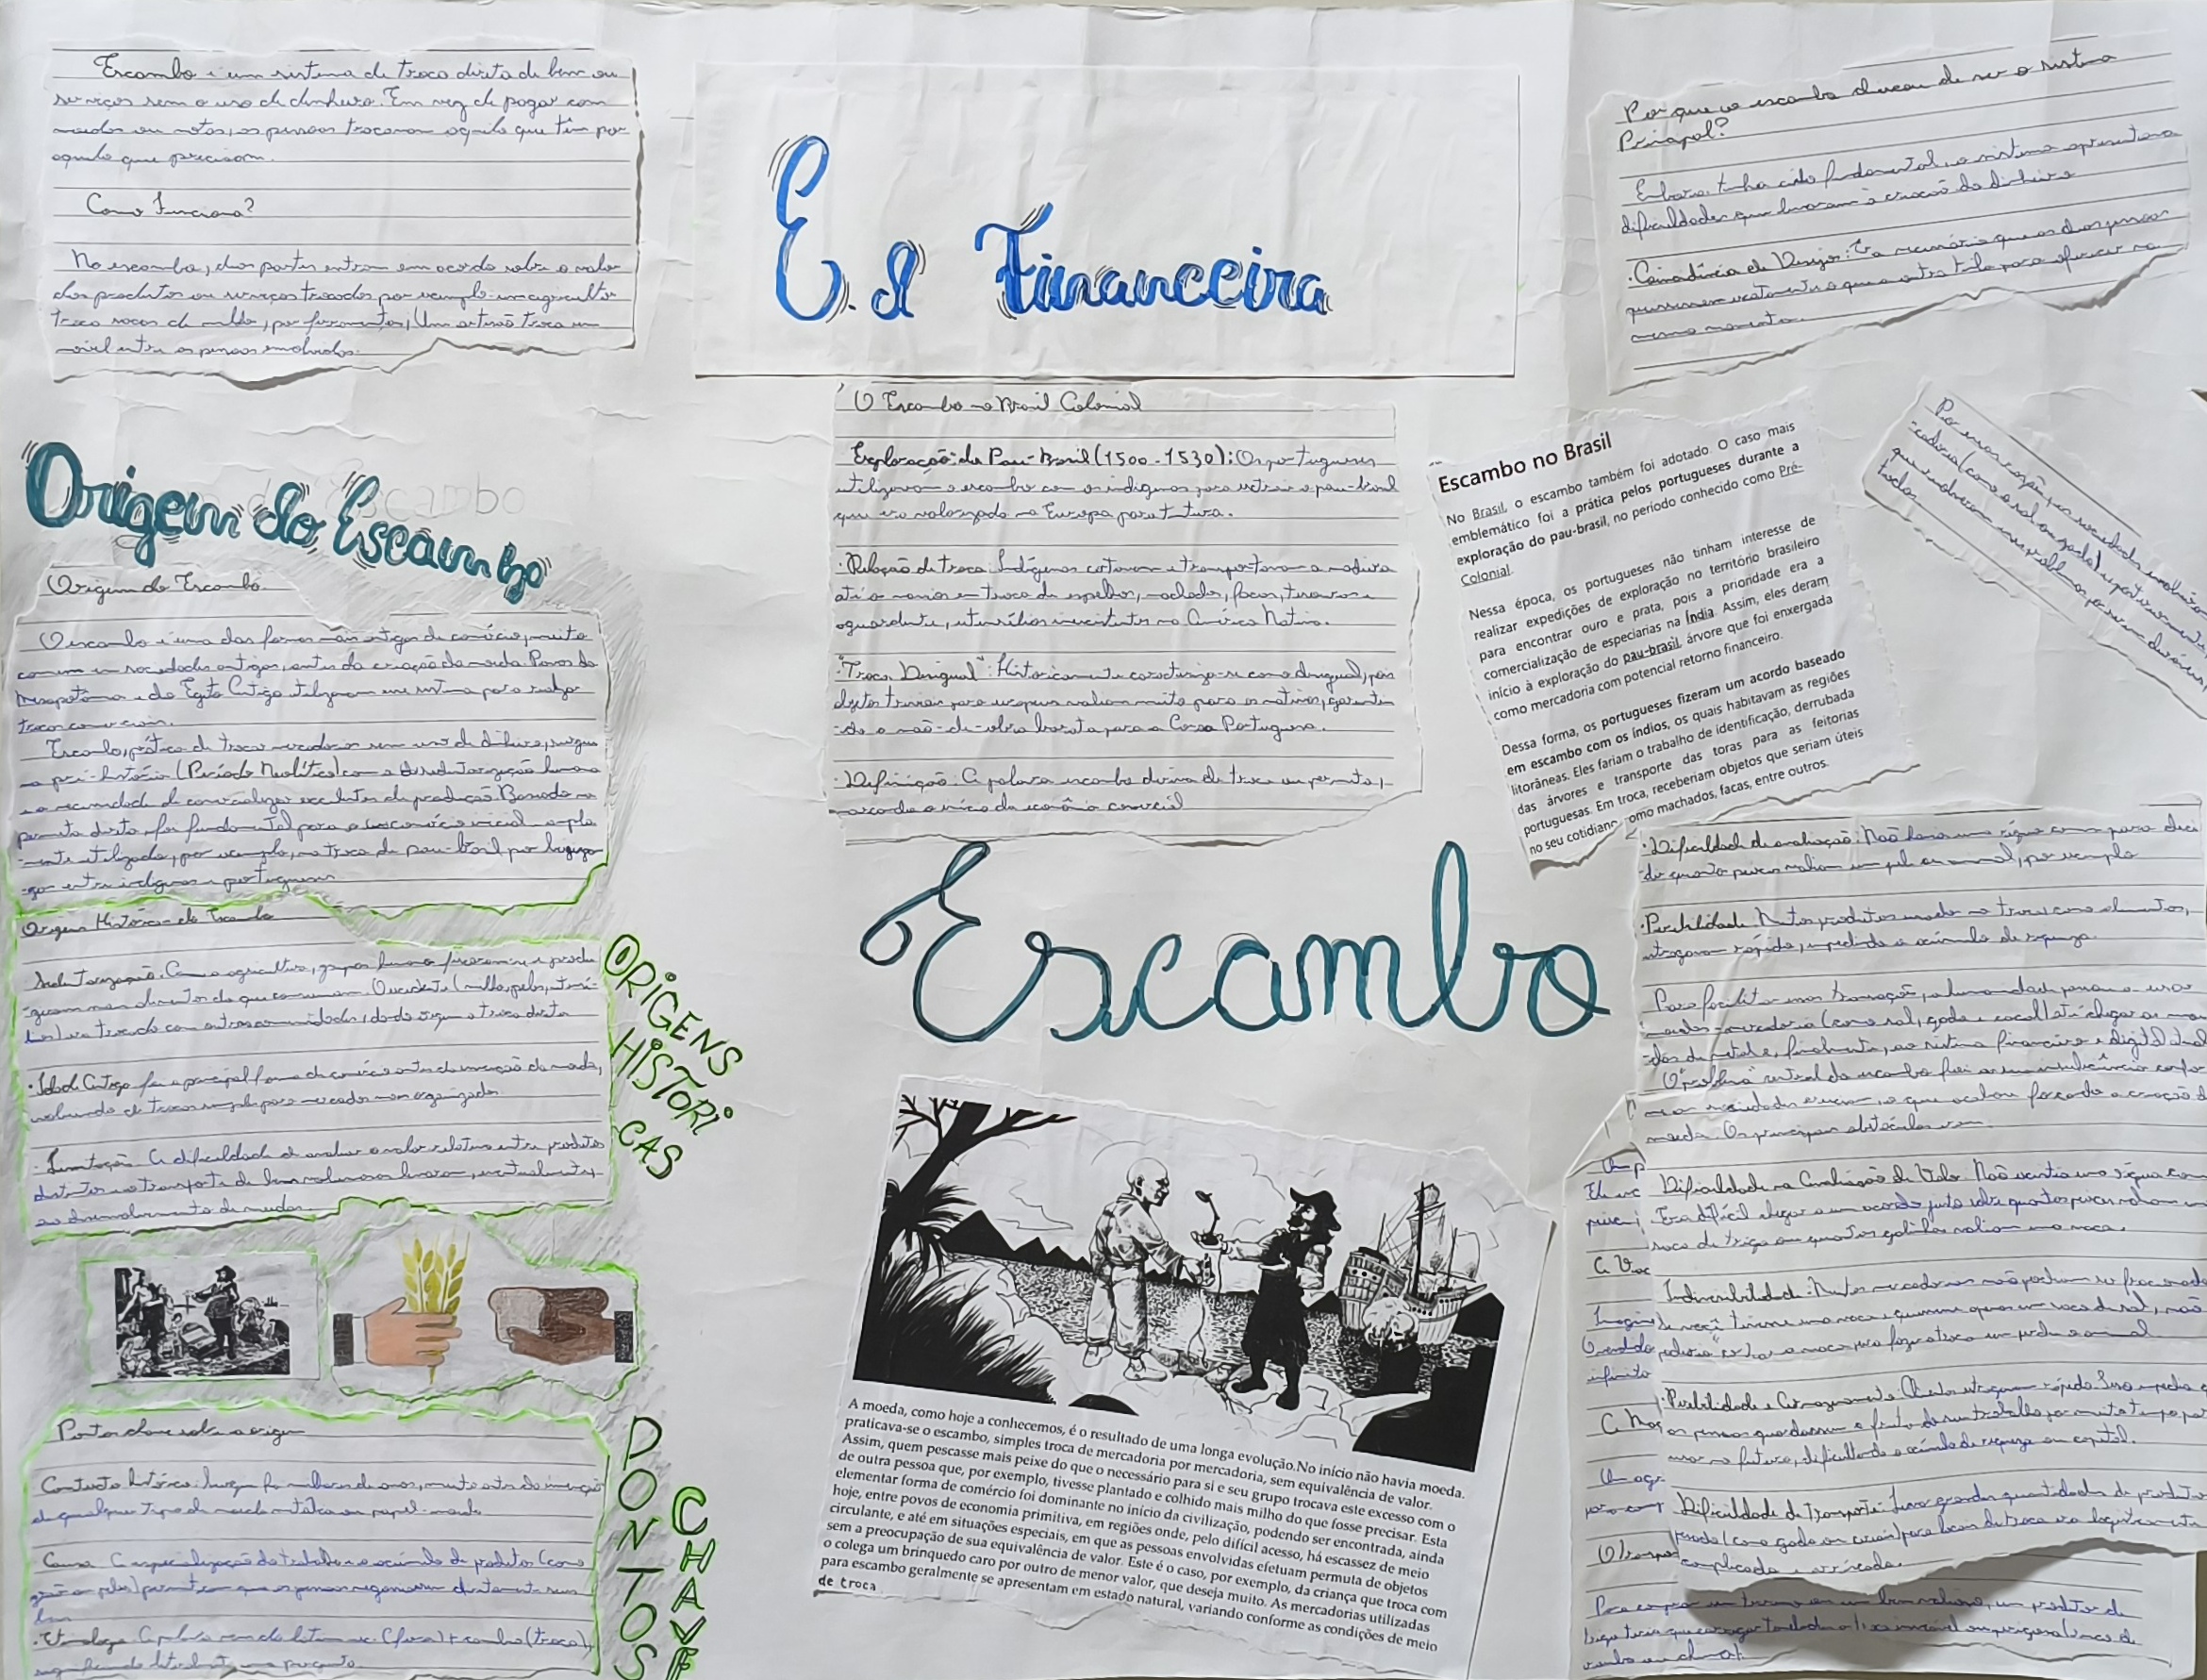 Escambo é um sistema de troca direta de bens ou
serviços sem o uso de dinheiro. Em vez de pagar com
moedas ou notas, as pessoas trocavam aquilo que têm por
aquilo que precisam.
Como Funciona?
No escambo, duas partes entram em acordo sobre o valor
dos produtos ou serviços trocados por exemplo um agricultor
troca sacas de milho, por ferramentas, Um artesão troca um
entre as pessoas envolvidas.
E.d Financeira
Por que o escambo deixou de ser o sistema
Principal?
Embora tenha sido fundamental, o sistema apresentava
dificuldades que levaram à criação do dinheiro
Coincidência de Desejos: Era necessário que as duas pessoas
quisessem exatamente o que a outra tinha para oferecer no
mesmo momento.
Origem do Escambo
Origem do Escambo.
O escambo é uma das formas mais antigas de comércio, muito
comum em sociedades antigas, antes da criação da moeda. Povos da
Mesopotâmia e do Egito Antigo utilizavam esse sistema para realizar
trocas comerciais.
Escambo, prática de trocar mercadorias sem uso de dinheiro, surgiu
na pré-história (Período Neolítico) com a sedentarização humana
e a necessidade de comercializar excedentes de produção. Baseado na
permuta direta, foi fundamental para o comércio inicial
-mente utilizado, por exemplo, na troca de pau-brasil por
entre indígenas e portugueses
O Escambo no Brasil Colonial
Exploração do Pau-Brasil (1500-1530): Os portugueses
utilizavam o escambo com os indígenas para extrair o pau-brasil
que era valorizado na Europa para tintura.
· Relação de troca: Indígenas cortavam e transportavam a madeira
até os navios em troca de espelhos, machados, facas, tesouras e
aguardente, utensílios inexistentes na América Nativa.
"Troca Desigual": Historicamente caracteriza-se como desigual, pois
objetos triviais para europeus valiam muito para os nativos, garantin
-do a mão-de-obra barata para a Coroa Portuguesa.
· Definição: A palavra escambo deriva de troca ou permuta,
marcando o início da economia comercial
Escambo no Brasil
No Brasil, o escambo também foi adotado. O caso mais
emblemático foi a prática pelos portugueses durante a
exploração do pau-brasil, no período conhecido como Pré-
Colonial.
Nessa época, os portugueses não tinham interesse de
realizar expedições de exploração no território brasileiro
para encontrar ouro e prata, pois a prioridade era a
comercialização de especiarias na Índia. Assim, eles deram
início à exploração do pau-brasil, árvore que foi enxergada
como mercadoria com potencial retorno financeiro.
Dessa forma, os portugueses fizeram um acordo baseado
em escambo com os índios, os quais habitavam as regiões
litorâneas. Eles fariam o trabalho de identificação, derrubada
das árvores e transporte das toras para as feitorias
portuguesas. Em troca, receberiam objetos que seriam úteis
no seu cotidiano omo machados, facas, entre outros.
Por essas razões, as sociedades evoluíram
-cadoria (como o sal ou gado) e posteriormente,
que resolveram esse problema por serem duráveis,
Origens Históricas do Escambo
Sedentarização. Com a agricultura, grupos humanos fixaram-se e produ
-ziram mais alimentos do que consumiam. O excedente (milho, peles, utensí-
lios) era trocado com outras comunidades, dando origem a troca direta
· Idade Antiga foi a principal forma de comércio antes da invenção da moeda,
evoluindo de trocas simples para mercados mais organizados
· Limitação A dificuldade de avaliar o valor relativo entre produtos
distintos e o transporte de bens volumosos levaram, eventualmente,
ao desenvolvimento de moedas.
ORIGENS
HISTORI
CAS
Escambo
· Dificuldade de avaliação: Não havia uma régua comum para deci
dir quantos peixes valiam um pele ou animal, por exemplo
· Peribilidade Muitos produtos usados na troca, como alimentos,
estragavam rápido, impedindo o acúmulo de riqueza.
Para facilitar essas transações, a humanidade passou a usar
moedas-mercadoria (como sal, gado e cacau) até chegar as moe
das de metal e, finalmente, ao sistema financeiro e digital atual
O "problema" central do escambo foi a sua insuficiência confor
me as sociedades cresciam, o que acabou forçando a criação d
moeda. Os principais obstáculos eram.
Dificuldade na Avaliação de Valor. Não existia uma régua com
Era difícil chegar a um acordo justo sobre quantos peixes valiam um
saca de trigo ou quantas galinhas valiam uma vaca.
Indivisibilidade. Muitas mercadorias não podiam ser fracionada
Se você tivesse uma vaca e quisesse apenas um saca de sal, não
poderia "cortar" a vaca para fazer a troca sem perder o animal
· Peribilidade e Armazenamento. Alimentos estragam rápido. Isso impedia q
as pessoas guardassem o fruto de seu trabalho por muito tempo par
usar no futuro, dificultando o acúmulo de riqueza ou capital.
Dificuldade de Transporte. Levar grandes quantidades de produto
pesado (como gado ou cereais) para locais de troca era logisticamente
complicado e arriscado.
Para comprar um terreno ou um bem valioso, um produtor de
trigo teria que carregar toneladas
Pontos chave sobre a origem
Contexto histórico: Surgiu há milhares de anos, muito antes da invenção
de qualquer tipo de moeda metálica ou papel-moeda
Causa A especialização do trabalho e o acúmulo de produtos (como
grãos ou peles) permitiram que as pessoas negociassem diretamente seus
bens
· Etimologia A palavra vem do latim ex (fora) + cambio (troca),
PONTOS
CHAVE
A moeda, como hoje a conhecemos, é o resultado de uma longa evolução.No início não havia moeda.
praticava-se o escambo, simples troca de mercadoria por mercadoria, sem equivalência de valor.
Assim, quem pescasse mais peixe do que o necessário para si e seu grupo trocava este excesso com o
de outra pessoa que, por exemplo, tivesse plantado e colhido mais milho do que fosse precisar. Esta
elementar forma de comércio foi dominante no início da civilização, podendo ser encontrada, ainda
hoje, entre povos de economia primitiva, em regiões onde, pelo difícil acesso, há escassez de meio
circulante, e até em situações especiais, em que as pessoas envolvidas efetuam permuta de objetos
sem a preocupação de sua equivalência de valor. Este é o caso, por exemplo, da criança que troca com
o colega um brinquedo caro por outro de menor valor, que deseja muito. As mercadorias utilizadas
para escambo geralmente se apresentam em estado natural, variando conforme as condições de meio
de troca